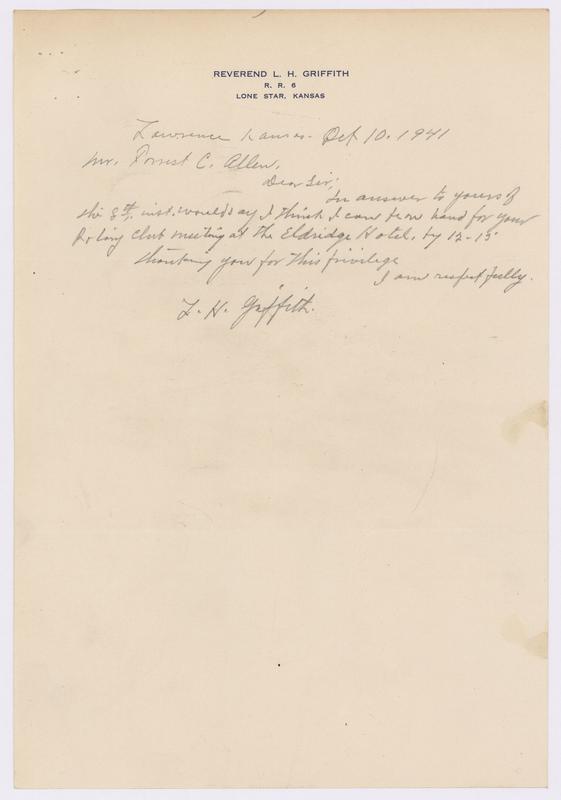 REVEREND L. H. GRIFFITH
R. R. 6
LONE STAR, KANSAS
Lawrence Kansas. Oct 10. 1941
Mr. Forrest C. Allen.
Dear Sir;
In answer to yours of
the 8th, inst. would say I think I can be on hand for your
Rotary Club meeting at the Eldridge Hotel, by 12-15
thanking you for this privilege
I am respectfully.
L. H. Griffith.